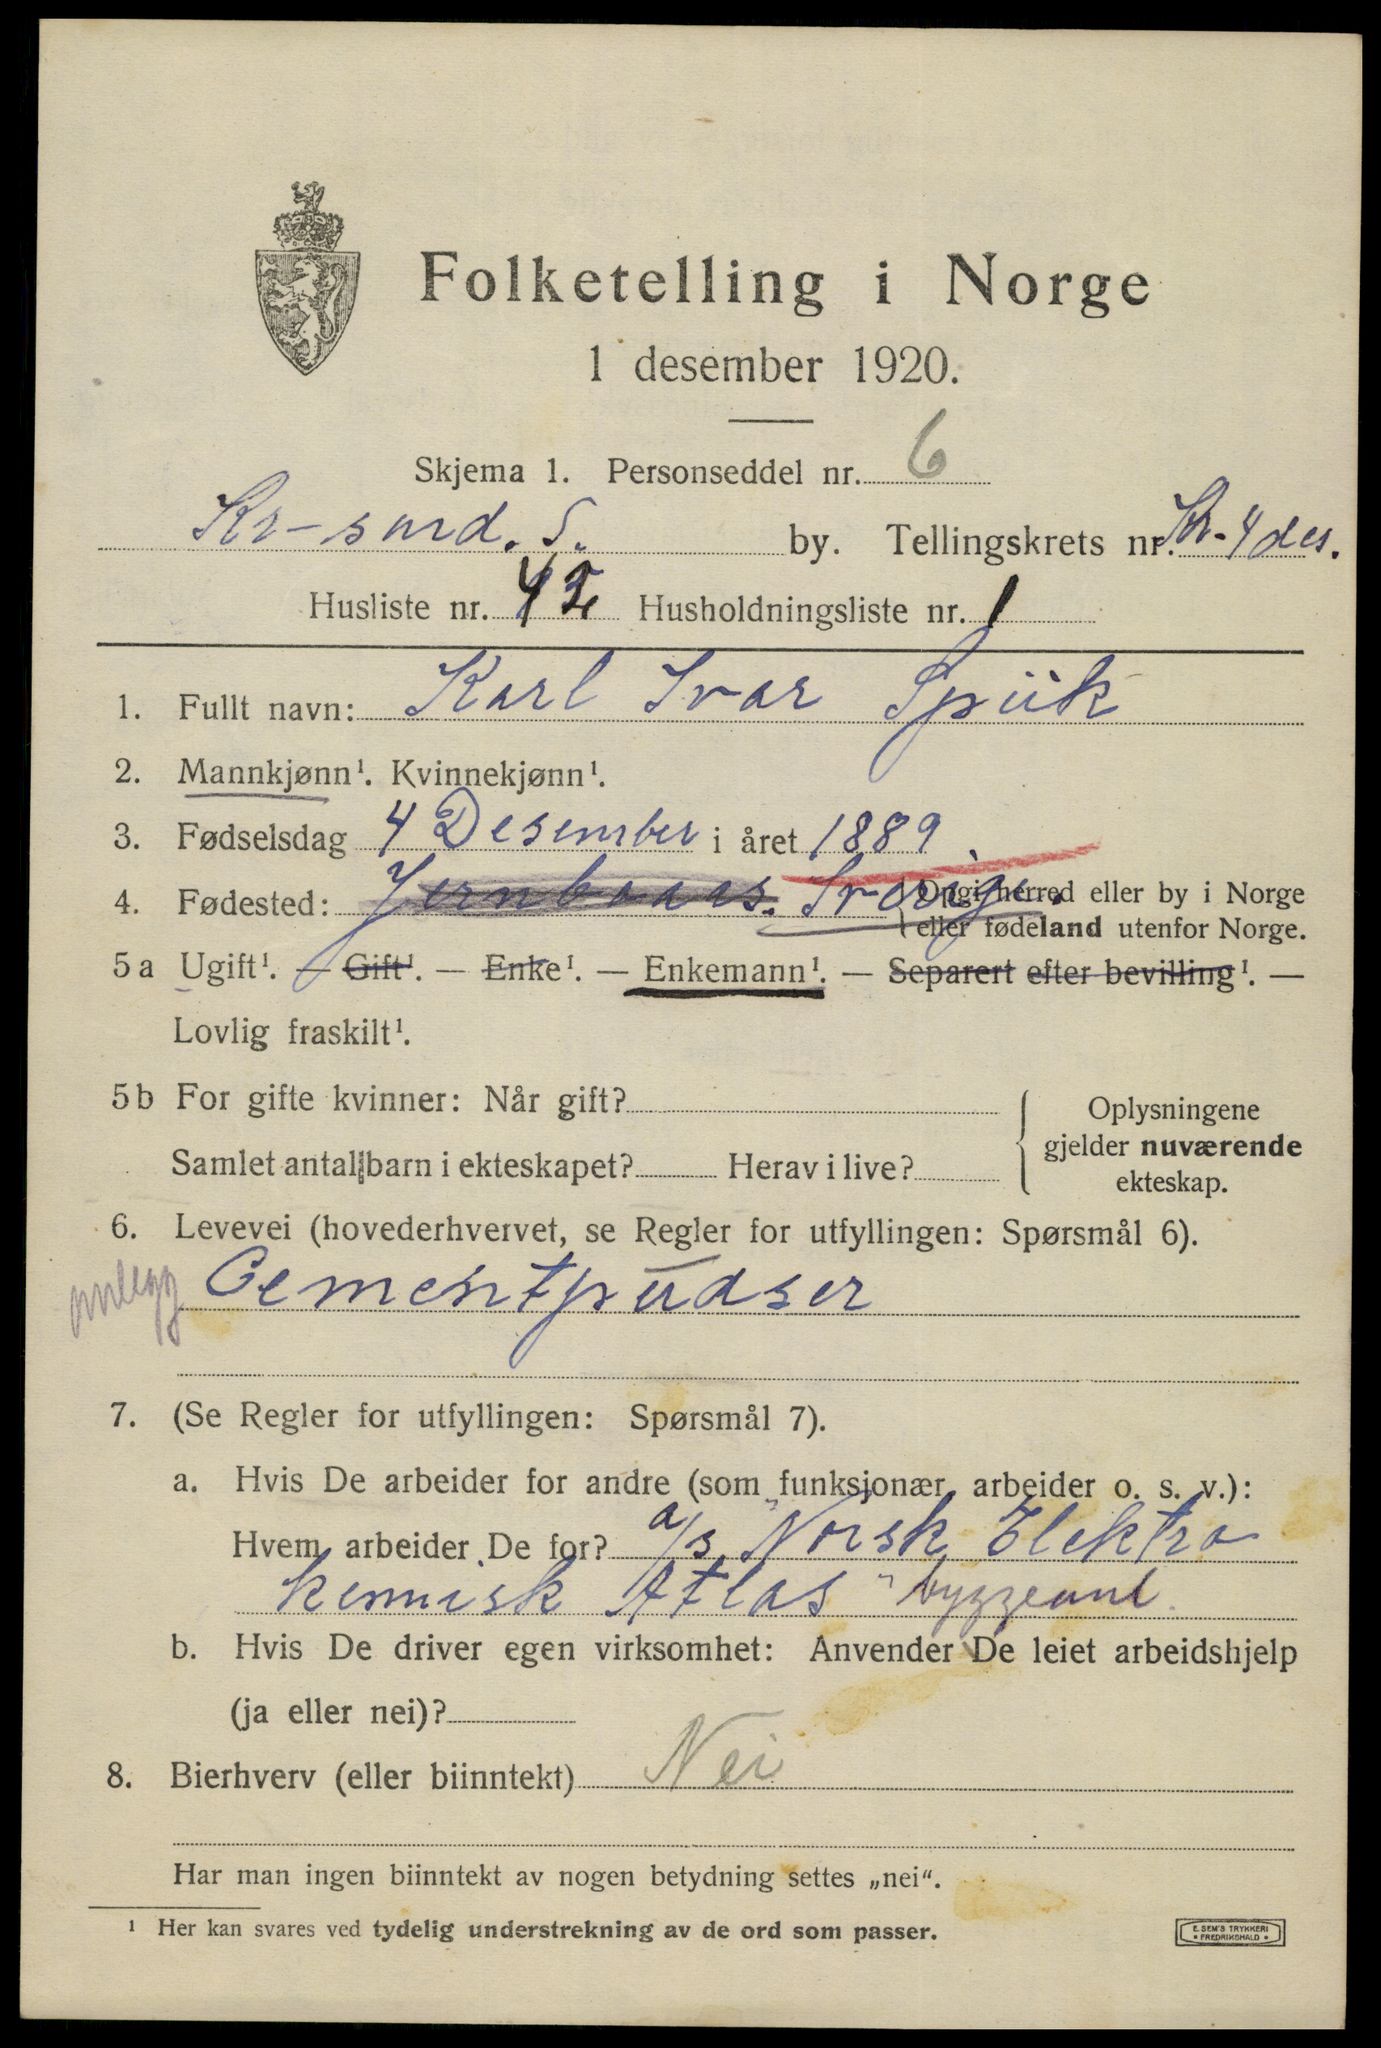 Folketelling i Norge
1 desember 1920.
Skjema 1. Personseddel nr. 6
Kr-sand. S. by. Tellingskrets nr. Kr-4 des.
Husliste nr. Husholdningsliste nr. 1
1. Fullt navn: Karl Ivar Spiik
2. Mannkjønn¹. Kvinnekjønn¹.
3. Fødselsdag 4 Desember i året 1889.
4. Fødested: Jernboaas. Sverige. {Opgi herred eller by i Norge
eller fødeland utenfor Norge.
5 a Ugift¹. — Gift¹. — Enke¹. — Enkemann¹. — Separert efter bevilling¹. —
Lovlig fraskilt¹.
5 b For gifte kvinner: Når gift?
Samlet antal barn i ekteskapet? Herav i live?
Oplysningene
gjelder nuværende
ekteskap.
6. Levevei (hovederhvervet, se Regler for utfyllingen: Spørsmål 6).
Cementpudser
7. (Se Regler for utfyllingen: Spørsmål 7).
a. Hvis De arbeider for andre (som funksjonær, arbeider o. s. v.):
Hvem arbeider De for? a/s "Norsk Elektro
kemisk Atlas" byggeanl.
b. Hvis De driver egen virksomhet: Anvender De leiet arbeidshjelp
(ja eller nei)?
8. Bierhverv (eller biinntekt) Nei
Har man ingen biinntekt av nogen betydning settes „nei“.
¹ Her kan svares ved tydelig understrekning av de ord som passer.
E. SEM'S TRYKKERI
• FREDRIKSHALD •